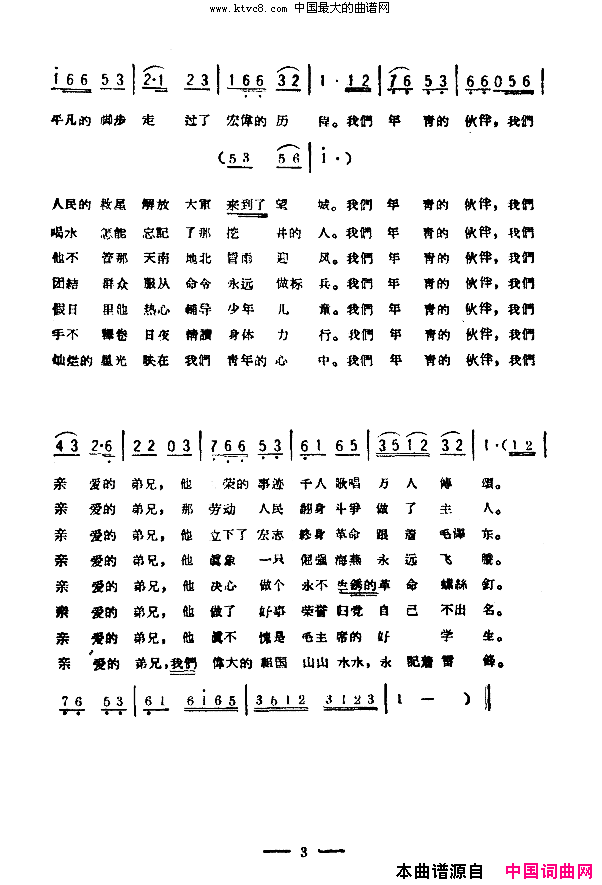 www.ktvc8.com 中国最大的曲谱网
i 6 6 5 3 | 2·1 2 3 | 1 6 6 3 2 | 1· 1 2 | 7 6 5 3 | 6 6 0 5 6 |
平凡的脚步 走 过了 宏偉的 历 程。我們 年 青的 伙伴，我們
( 5 3 5 6 | i· )
人民的 救星 解放 大軍 来到了 望 城。我們 年 青的 伙伴，我們
喝水 怎能 忘記 了那 挖 井的 人。我們 年 青的 伙伴，我們
他不 管那 天南 地北 冒雨 迎 风。我們 年 青的 伙伴，我們
团結 群众 服从 命令 永远 做标 兵。我們 年 青的 伙伴，我們
假日 里他 热心 輔导 少年 儿 童。我們 年 青的 伙伴，我們
手不 釋卷 日夜 精讀 身体 力 行。我們 年 青的 伙伴，我們
灿烂的 星光 映在 我們 青年的 心 中。我們 年 青的 伙伴，我們
4 3 2·6 | 2 2 0 3 | 7 6 6 5 3 | 6 1 6 5 | 3 5 1 2 3 2 | 1·( 1 2 |
亲 爱的 弟兄，他 光荣的 事迹 千人 歌唱 万人 傳 頌。
亲 爱的 弟兄，那 劳动 人民 翻身 斗爭 做 了 主 人。
亲 爱的 弟兄，他 立下了 宏志 終身 革命 跟 着 毛澤 东。
亲 爱的 弟兄，他 眞象 一只 倔强 海燕 永远 飞 騰。
亲 爱的 弟兄，他 决心 做个 永不 生銹的 革 命 螺絲 釘。
亲 爱的 弟兄，他 做了 好事 荣誉 归党 自 己 不出 名。
亲 爱的 弟兄，他 眞不 愧是 毛主 席的 好 学 生。
亲 爱的 弟兄，我們 偉大的 祖国 山山 水水，永 記着 雷 鋒。
7 6 5 3 | 6 1 6 i 6 5 | 3 5 1 2 3 1 2 3 | 1 — ) |
— 3 —
本曲谱源自 中国词曲网